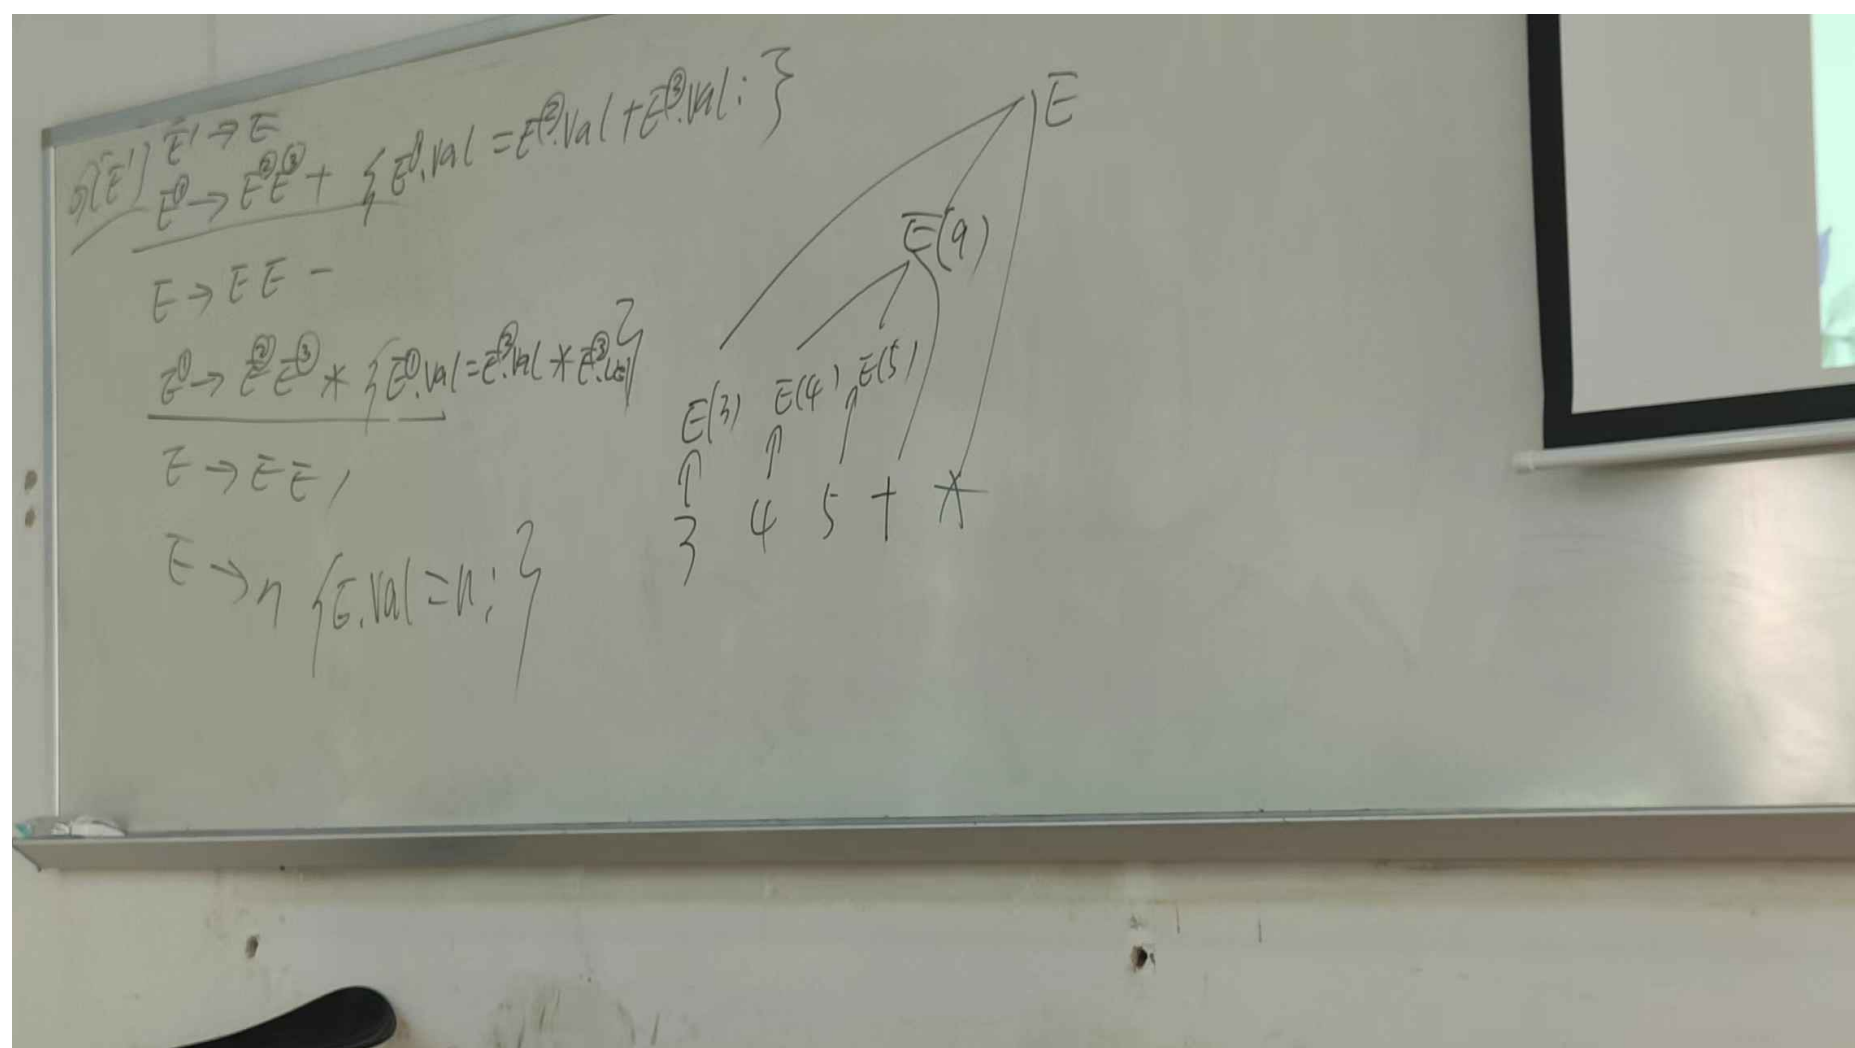 G[E'] E' → E
E① → E②E③ + { E①.val = E②.val + E③.val; }
E → E E -
E① → E②E③ * { E①.val = E②.val * E③.val }
E → E E /
E → n { E.val = n; }
E
E(9)
E(3) E(4) E(5)
3 4 5 + *